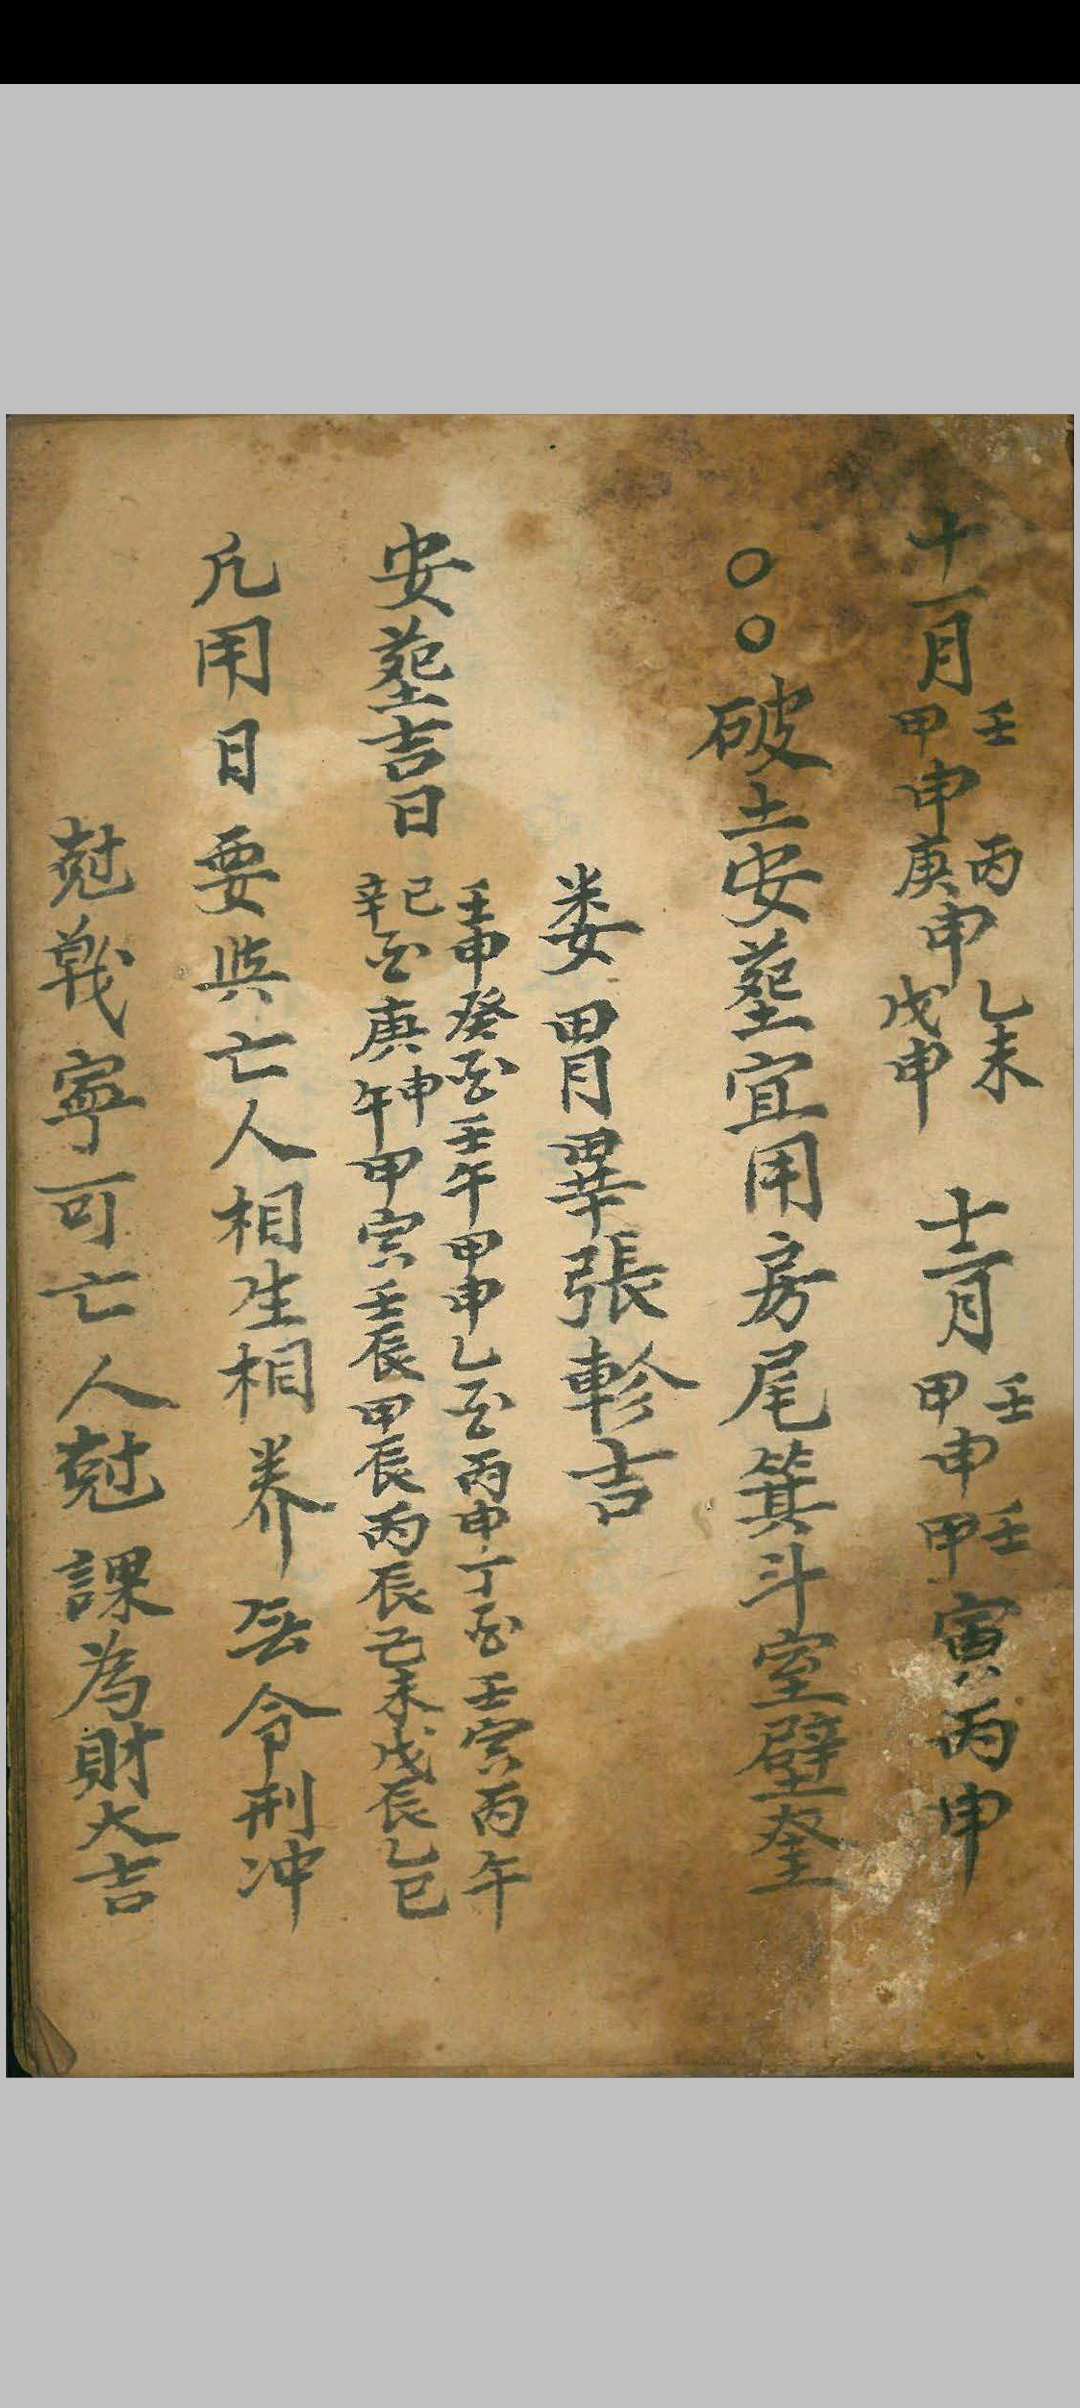 十一月 壬甲申 丙庚申 乙未 戊申 十二月 壬甲申 壬甲寅 丙申
○○破土安塟宜用房尾箕斗室壁奎
婁胃畢張軫吉
安塟吉日 壬申癸酉壬午甲申乙酉丙申丁酉壬寅丙午
己辛酉庚申午甲寅壬辰甲辰丙辰己未戊辰乙巳
凡用日要與亡人相生相养無令刑冲
尅戰寧可亡人尅課為財大吉